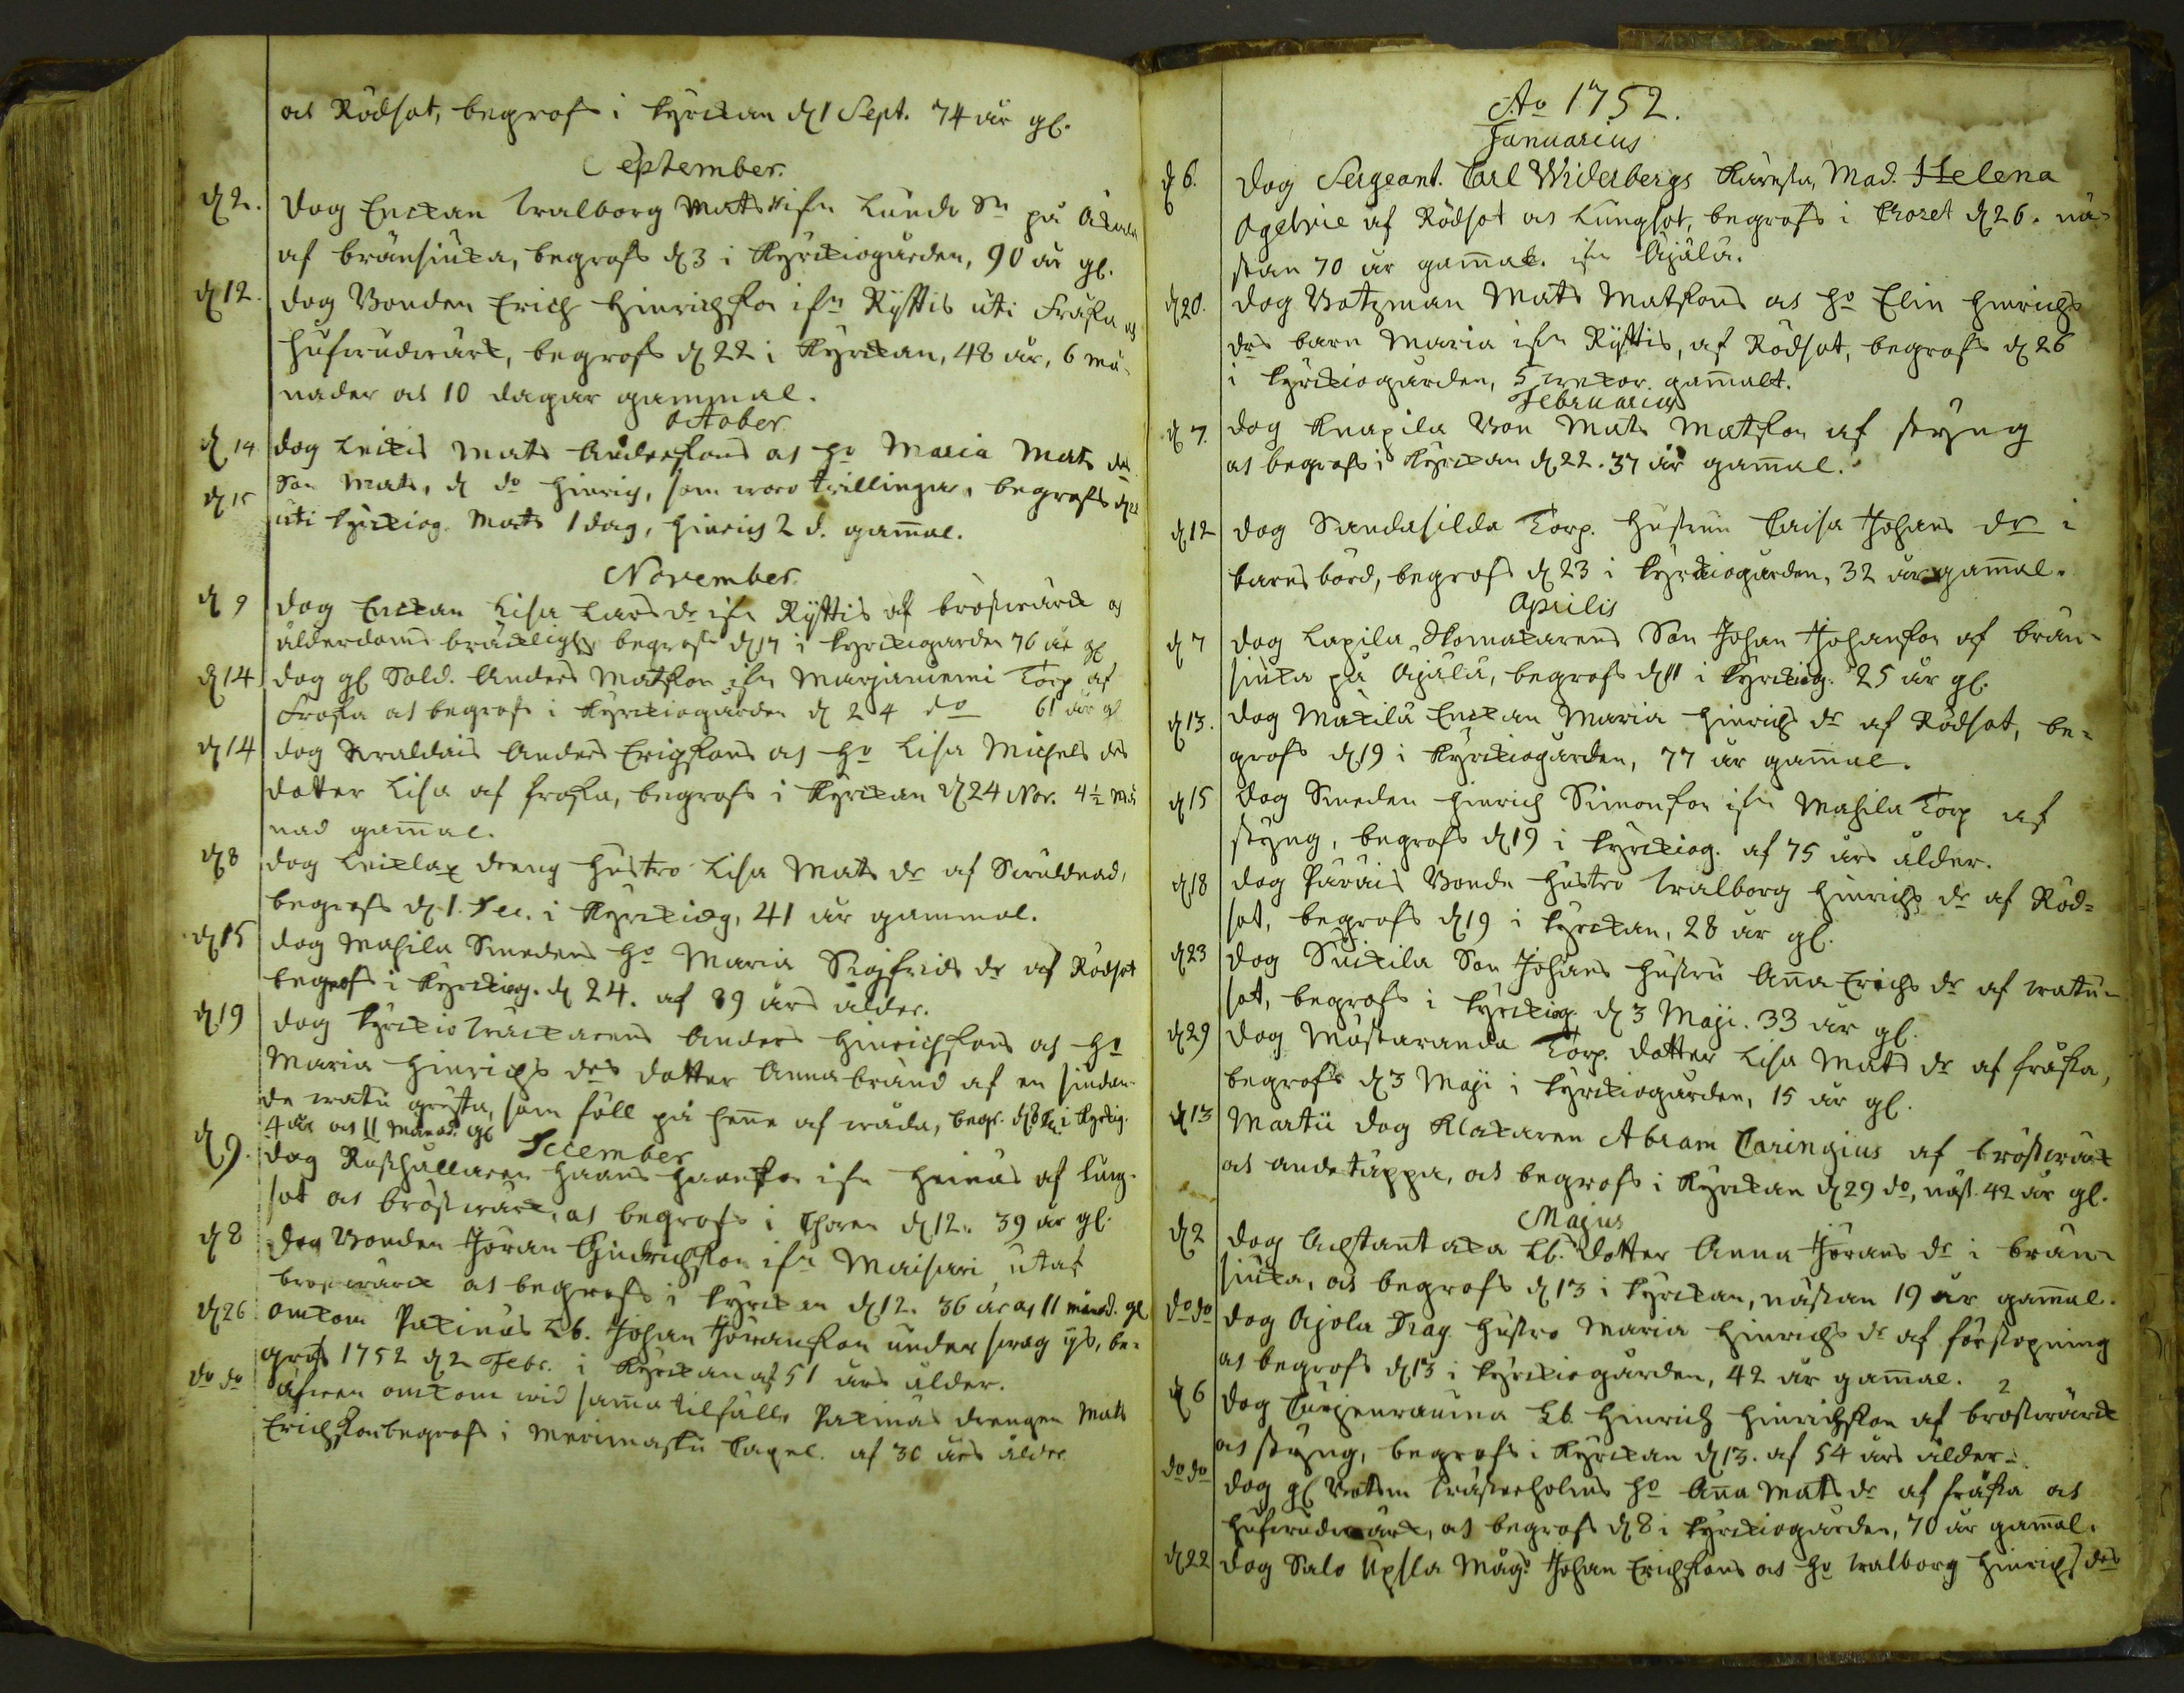 at Rödsot, begrofs i Kyrckan d 1 Sept. 74 år gl.
September.
d 2. dog Enckan Walborg Mats ifn Lundo Sn på
af bränsiuka, begrofs d 3 i Kyrckiogården, 90 år gl.
d 12. dog Bonden Erich Hinrichsson ifn Ryttis uti Frassa at
hufwudwärk, begrofs d 22 i Kyrckan, 48 år, 6 må-
nader at 10 dagar gammal.
October
d 14 dog Leikis Mats Andersons at ho Maria Mats drs
d 15 Son Mats, d do Hinrich, som woro twillingar, begrofs d 22
uti Kyrckiog. Mats 1 dag, Hinrich 2 d. gamal.
November.
d 9 dog Enckan Lisa Lars dr ifn Ryttis af bröstwärk at
ålderdoms bräckligh. begrofs d 17 i Kyrckiogården 76 år gl
d 14 dog gl Sold. Anders Matsson ifn Marjaniemi Torp af
Frossa at begrofs i Kyrckiogården d 24 do 61 år gl
d 14 dog Anders Erichsons at ho Lisa Michels drs
dotter Lisa af frossa, begrofs i Kyrckan d 24 Nov. 4½ må
nad gamal.
d 8 dog Leiklax dreng Hustro Lisa Mats dr af
begrofs d 1. Dec. i Kyrckiog, 41 år gammal.
d 15 dog Mahila Smedens ho Maria Sigfrids dr af Rödsot
begrofs i Kyrckiog. d 24. af 39 års ålder.
d 19 dog Kyrckio Wäcktarens Anders Hinrichsons at ho
Maria Hinrichs drs dotter Anna bränd af en siudan-
de watu gryta, som föll på hene af wåda, begr. d 8 Xbr i Kyrkiog.
4 år at 11 månad. gl
December
d 9. dog Rusthållaren Hans Hansson ifn Heinäs af lung-
sot at bröstwärk, at begrofs i Choren d 12. 39 år gl.
d 8 dog Bonden Jöran Hindrichsson ifn Maisari utaf
bröstwärk at begrofs i Kyrckan d 12. 36 år at 11 månad. gl
d 26 omkom Pakinäs Lb. Johan Jöransson under swag ijs, be-
grofs 1752 d 2 Febr. i Kyrckan af 51 års ålder.
do do äfwen omkom wid sama tilfälle Pakinäs drengen Mats
Erichsson begrofs i Merimasku Capel. af 30 års ålder
Ao 1752.
Januarius
d 6. dog Sergeant. Carl Widerbergs Käresta, Mad. Helena
Ogelvie af Rödsot at Lungsot, begrofs i Choret d 26. nä-
stan 70 år gamal. ifn Ajåla.
d 20. dog Botzman Mats Matsons at ho Elin Hinrichs
drs barn Maria ifn Ryttis, af Rödsot, begrofs d 26
i Kyrckiogården, 5 wekor gamalt.
Februarius
d 7. dog Knapila Bon Mats Matsson af styng
at begrofs i Kyrckan d 22. 37 år gamal.
d 12 dog Sandasilda Torp. Hustrun Caisa Johans dr i
barnsbörd, begrofs d 23 i Kyrckiogården, 32 år gamal.
Aprilis
d 7 dog Lapila Skomakarens Son Johan Johansson af brän-
siuka på Ajåla, begrofs d 11 i Kyrckiog. 25 år gl.
d 13. dog Makila Enckan Maria Hinrichs dr af Rödsot, be-
grofs d 19 i Kyrckiogården, 77 år gamal.
d 15 dog Smeden Hinrich Simonson ifn Mahila Torp af
styng, begrofs d 19 i Kyrckiog. af 75 års ålder.
d 18 dog Päräis Bonde Hustro Walborg Hinrichs dr af Röd-
sot, begrofs d 19 i Kyrckan, 28 år gl.
d 23 dog Suikila Son Johans Hustru Ana Erichs dr af watu-
sot, begrofs i Kyrckiog. d 3 Maji. 33 år gl.
d 29 dog Mustaranda Torp. dotter Lisa Mats dr af fråssa,
begrofs d 3 Maji i Kyrckiogården, 15 år gl.
d 13 Martii dog Klåkaren Abram Caringius af bröstwärk
at andetäppa, at begrofs i Kyrckan d 29 do, näst. 42 år gl.
Majus
d 2 dog Lb. dotter Anna Jörans dr i brän-
siuka, at begrofs d 13 i Kyrckan, nästan 19 år gamal.
do do dog Ajola Drag. Hustro Maria Hinrichs dr af förstopning
at begrofs d 13 i Kyrckiogården, 42 år gamal.
d 6 dog Lb. Hinrich Hinrichsson af bröstwärk
at styng, begrofs i Kyrckan d 13. af 54 års ålder.
do do dog gl Botsm. ho Ana Mats dr af fråssa at
hufwudwärk, at begrofs d 8 i Kyrckiogården, 70 år gamal.
d 22 dog Salo Upsla Måg. Johan Erichsons at ho Walborg Hinrichs drs